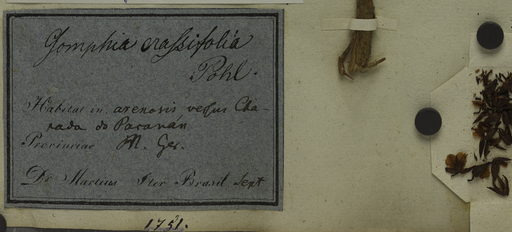 Gomphia crassifolia
Pohl.
Habitat in arenosis versus Cha-
rada do Paranán
Provinciae M. Ger.
Dr Martius Iter Brasil Sept
1751.